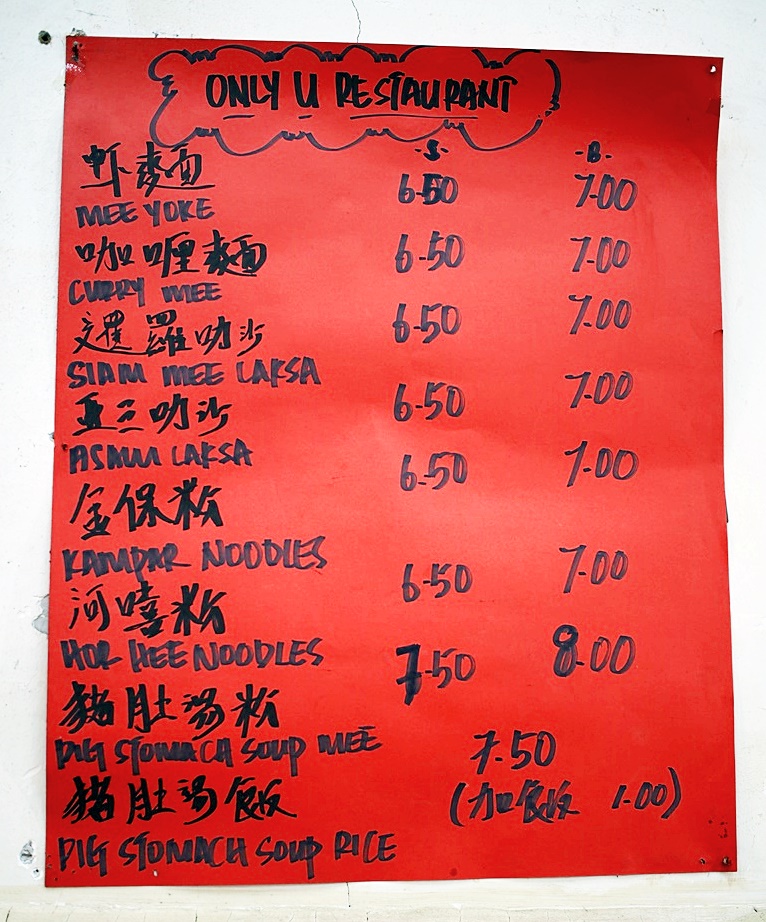 ONLY U RESTAURANT
-S- -B-
虾麵 6.50 7.00
MEE YOKE
咖喱麵 6.50 7.00
CURRY MEE
暹羅叻沙 6.50 7.00
SIAM MEE LAKSA
亞三叻沙 6.50 7.00
ASAM LAKSA
金保粉 6.50 7.00
KAMPAR NOODLES
河嘻粉 6.50 7.00
HOR HEE NOODLES
豬肚湯粉 7.50 8.00
PIG STOMACH SOUP MEE
豬肚湯飯 7.50
(加飯 1.00)
PIG STOMACH SOUP RICE